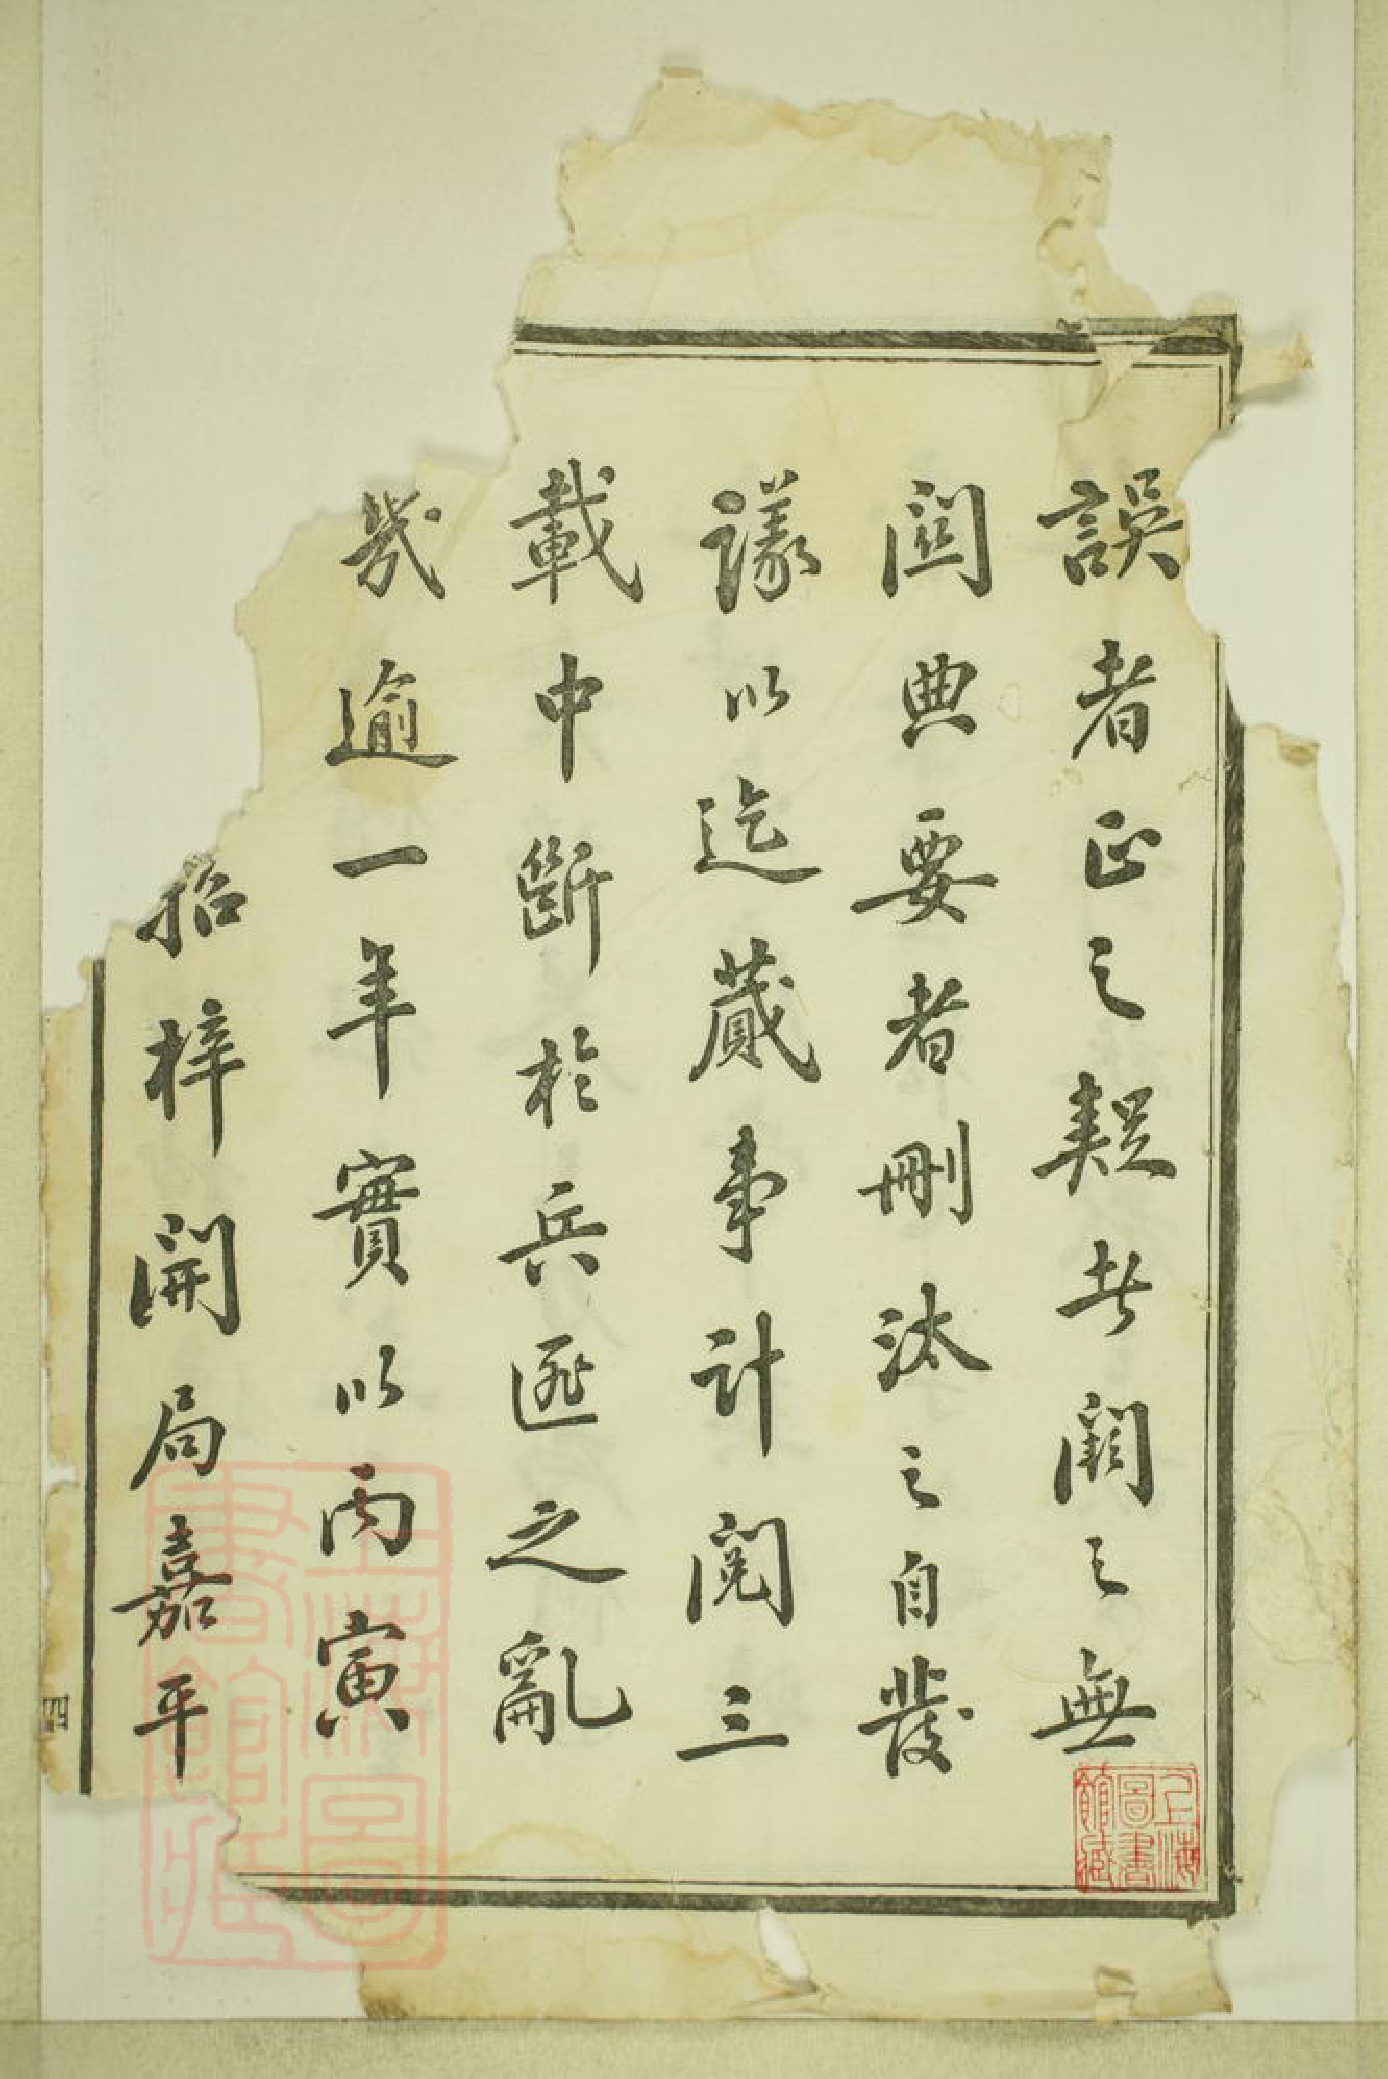 誤者正之疑者闕之無
關典要者刪汰之自發
議以迄蕆事計閱三
載中斷於兵匪之亂
幾逾一年實以丙寅
招梓開局嘉平
四
上海圖書館藏
上海圖書館藏